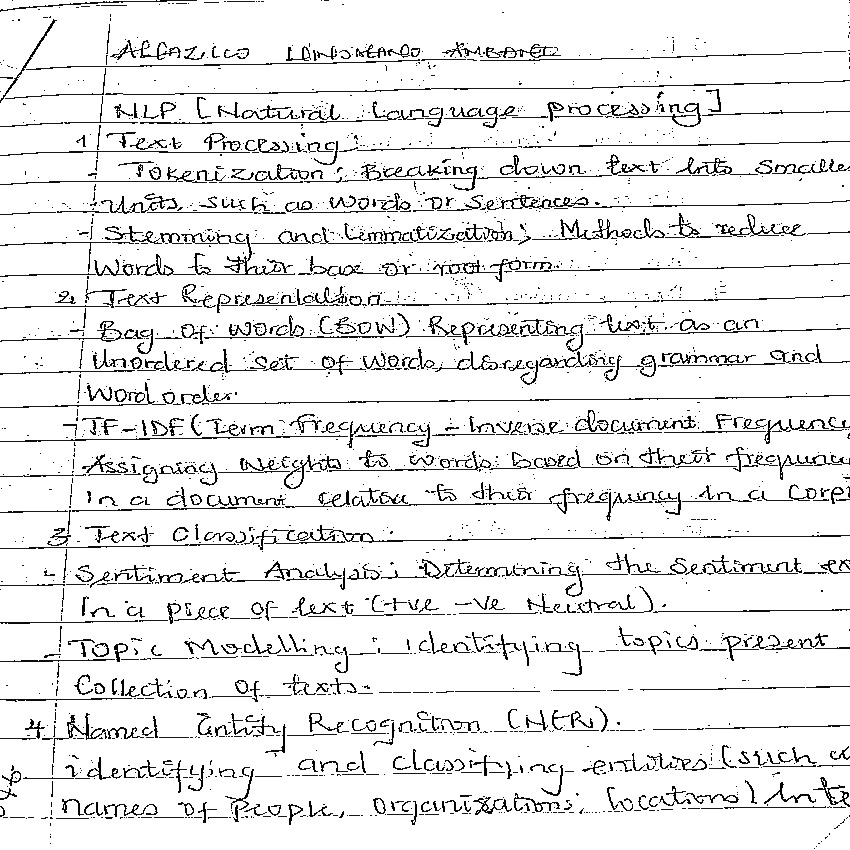 NLP [Natural Language processing]
1 Text Processing:
- Tokenization; Breaking down text into Smalle
Units, such as words or Sentences.
- Stemming and Lemmatization; Methods to reduce
Words to their base or root form.
2. Text Representation
- Bag of words (BOW) Representing text as an
Unordered set of words, disregarding grammar and
Word order.
- TF-IDF (Term Frequency - Inverse document Frequency
Assigning weights to words based on their frequency
In a document relative to their frequency in a Corp
3 Text Classification.
- Sentiment Analysis; Determining the Sentiment ex
In a piece of text (+ve -ve Neutral).
- Topic Modelling; identifying topics present
Collection of texts.
4 Named Entity Recognition (NER).
identifying and classifying entities (such a
names of people, organizations, locations) Inte